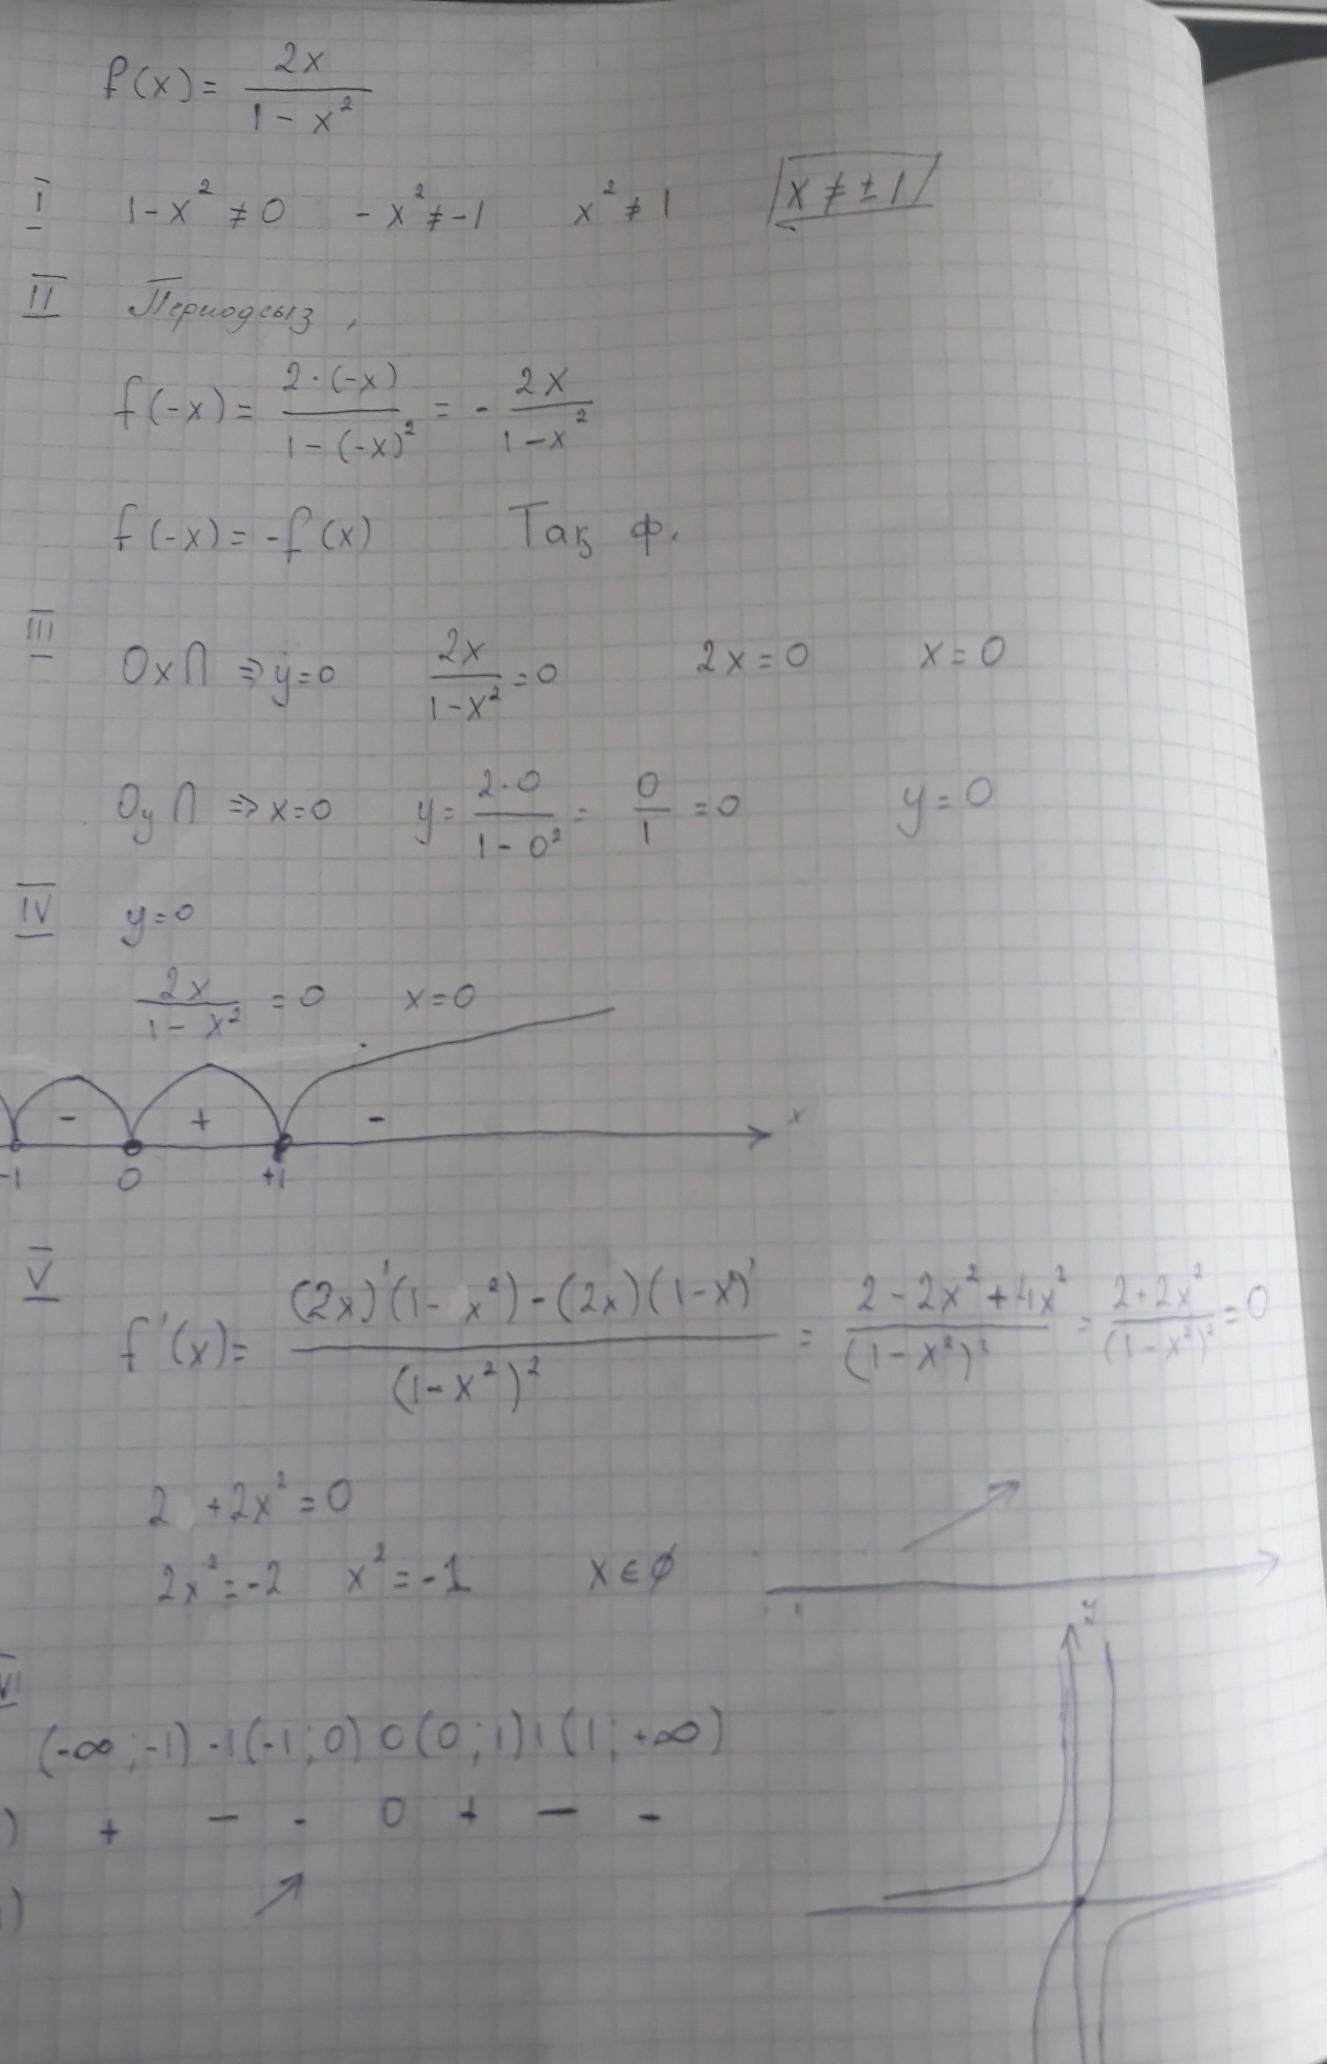 f(x) = 2x / (1 - x²)
I 1 - x² ≠ 0 - x² ≠ -1 x² ≠ 1 x ≠ ± 1
II Периодсыз,
f(-x) = 2·(-x) / (1 - (-x)²) = - 2x / (1 - x²)
f(-x) = -f(x) Тақ ф.
III Ox ∩ ⇒ y=0 2x / (1 - x²) = 0 2x = 0 x = 0
Oy ∩ ⇒ x=0 y = 2·0 / (1 - 0²) = 0 / 1 = 0 y = 0
IV y=0
2x / (1 - x²) = 0 x=0
- + - x
-1 0 +1
V f'(x) = ((2x)'(1 - x²) - (2x)(1 - x²)') / (1 - x²)² = (2 - 2x² + 4x²) / (1 - x²)² = (2 + 2x²) / (1 - x²)² = 0
2 + 2x² = 0
2x² = -2 x² = -1 x ∈ ∅
VI
y
(-∞; -1) -1 (-1; 0) 0 (0; 1) 1 (1; +∞)
) + - - 0 + - -
) ↗